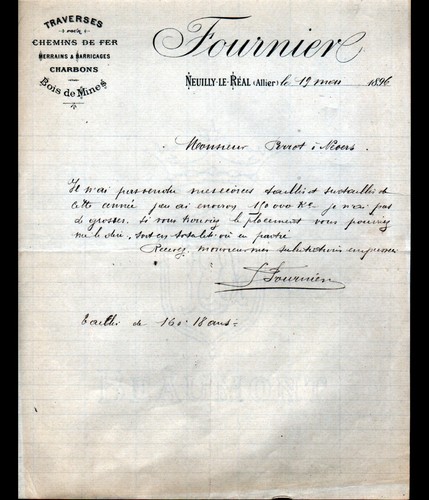 TRAVERSES
pour
CHEMINS DE FER
MERRAINS & BARRICAGES
CHARBONS
Bois de Mines
Fournier
NEUILLY-LE-RÉAL (Allier) le 19 mars 1896
Monsieur Perrot à Nevers
Je n'ai pas vendu mes écorces taillis et
cette année j'en ai environ 150000 Ks je n'ai pas
de grosses. si vous trouviez le placement vous pouvez
me le dire, soit en totalité où en partie
Recevez, monsieur mes salutations empressées
J. Fournier
Taillis de 16 à 18 ans =